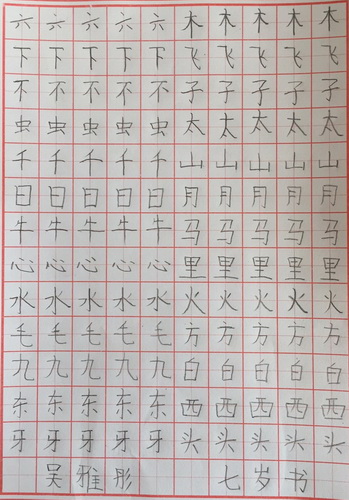 六六六六六木木木木木
下下下下下飞飞飞飞飞
不不不不不子子子子子
虫虫虫虫虫太太太太太
千千千千千山山山山山
日日日日日月月月月月
牛牛牛牛牛马马马马马
心心心心心里里里里里
水水水水水火火火火火
毛毛毛毛毛方方方方方
九九九九九白白白白白
东东东东东西西西西西
牙牙牙牙牙头头头头头
吴雅彤 七岁书